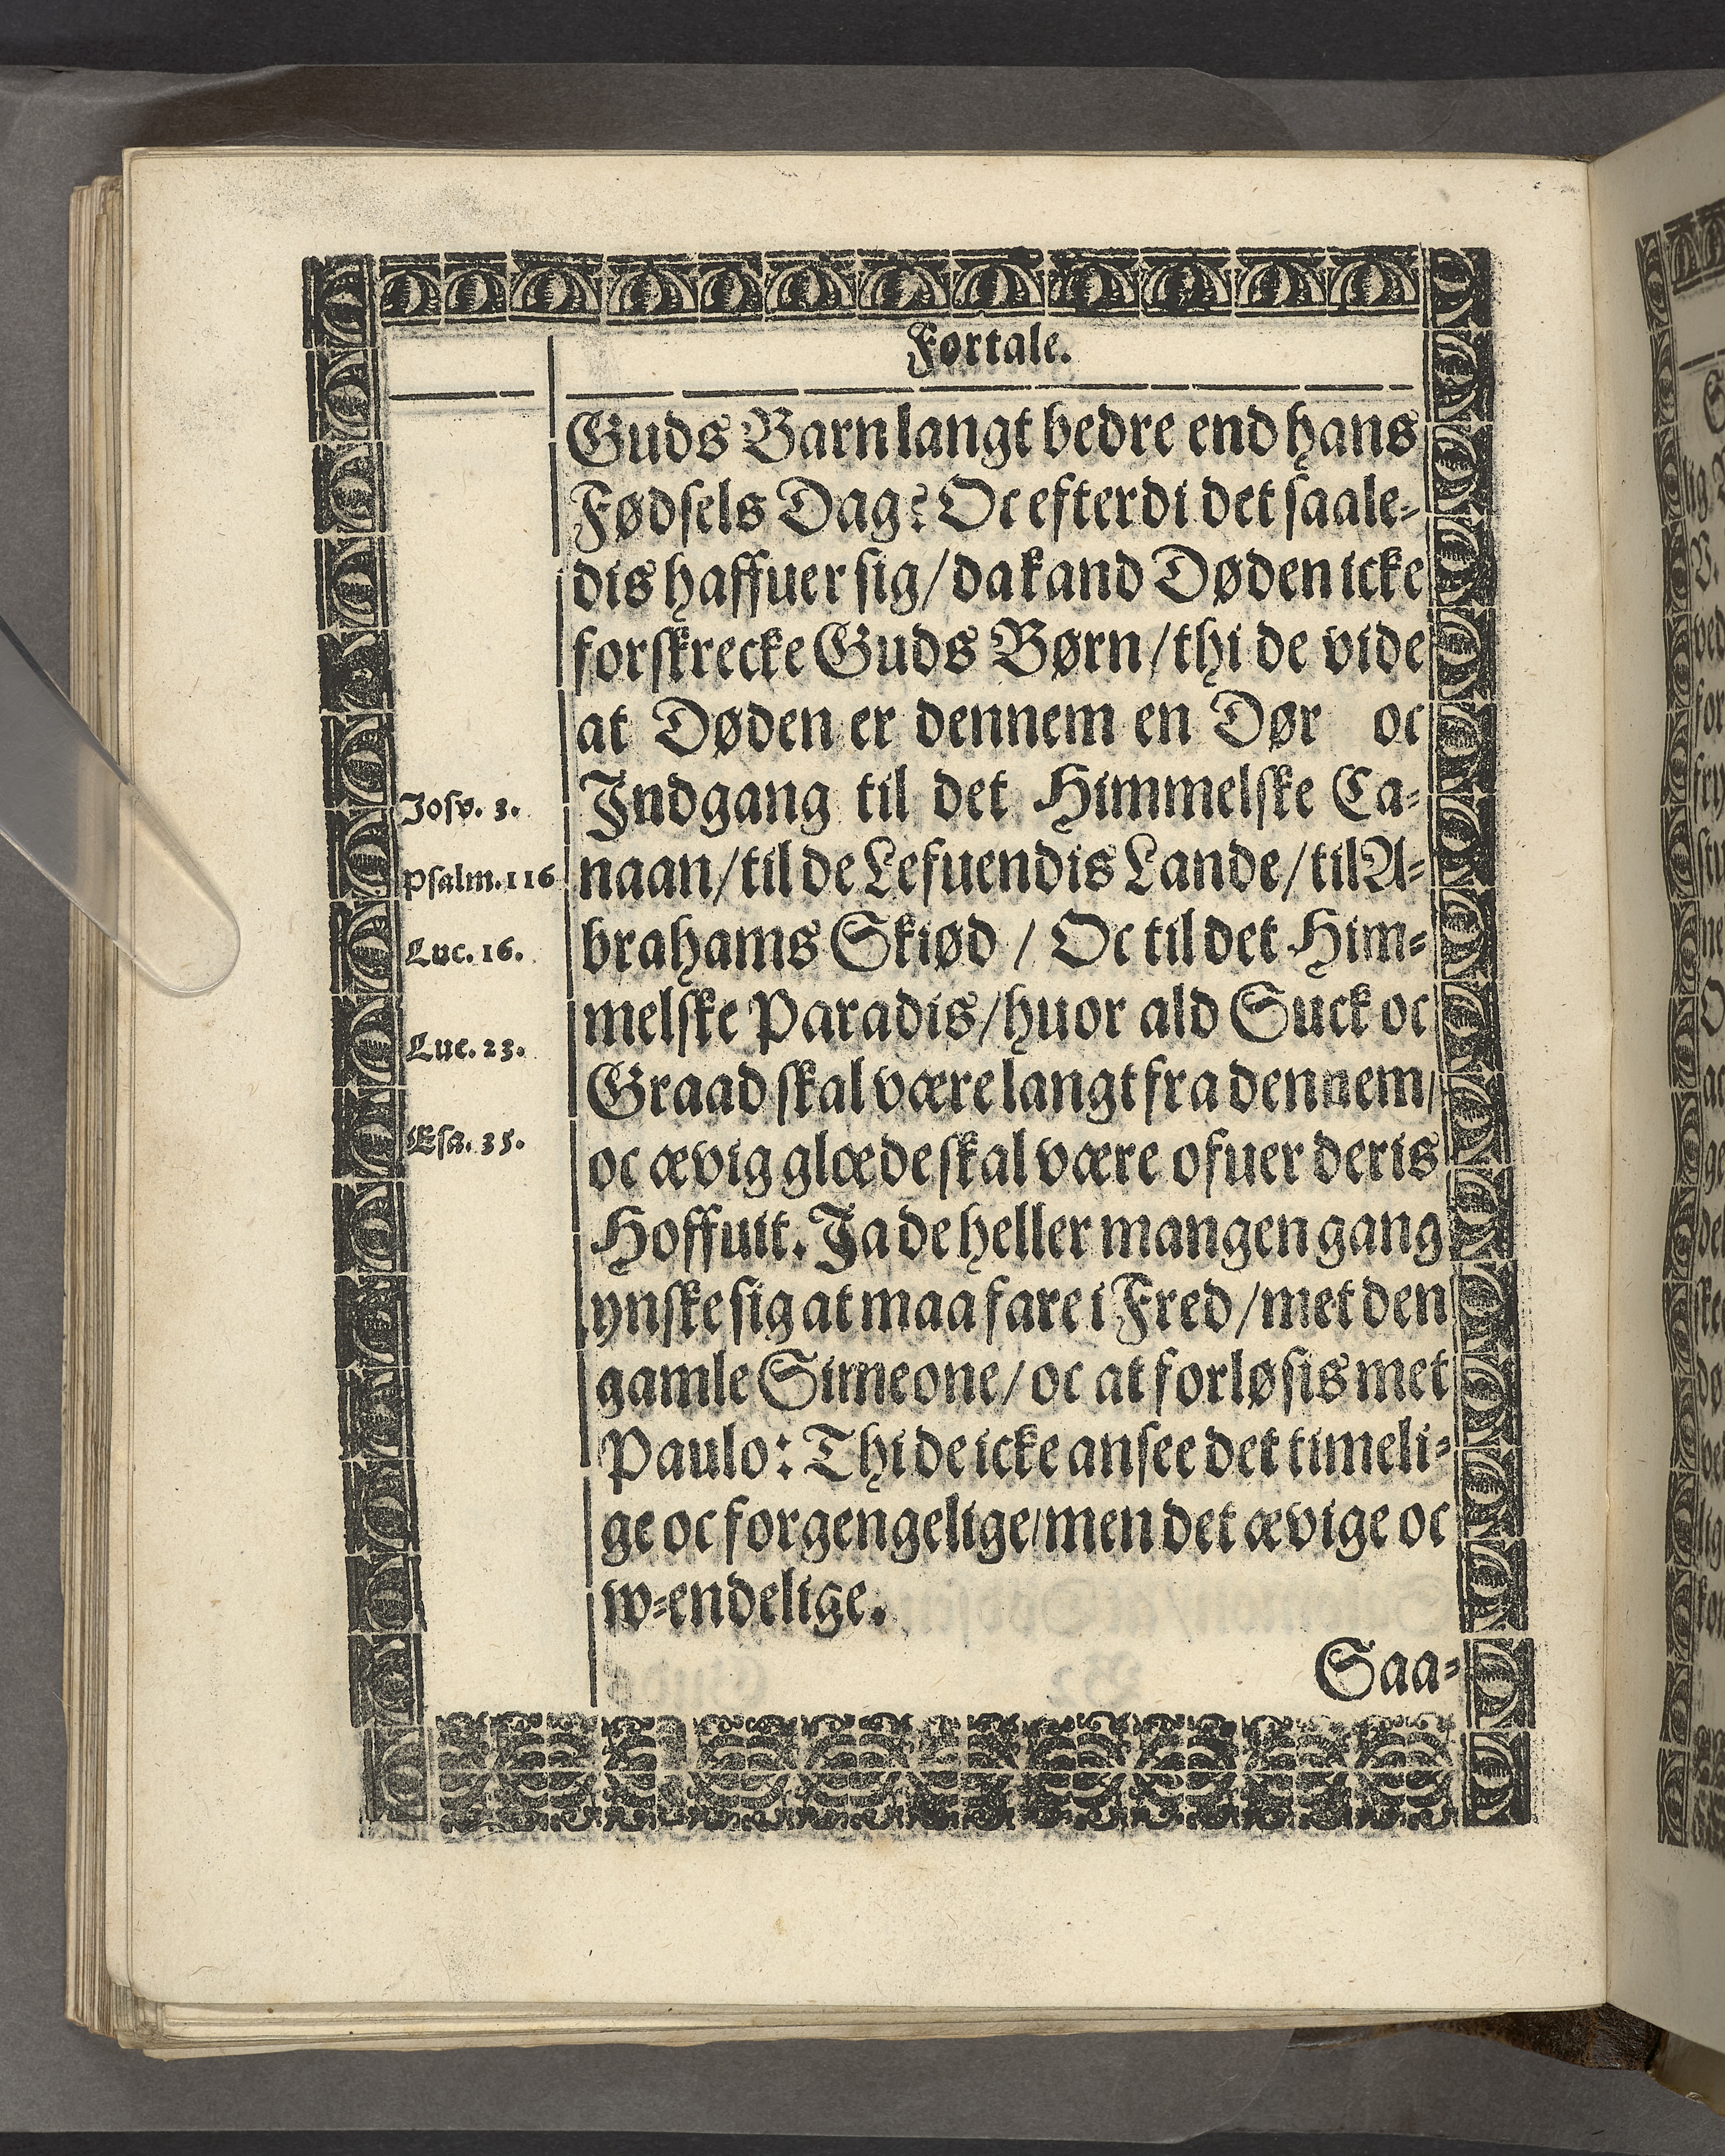 Fortale.
Guds Barn langt bedre end hans
Fødsels Dag? Oc efterdi det saale-
dis haffuer sig/ da kand Døden icke
forskrecke Guds Børn/ thi de vide
at Døden er dennem en Dør oc
Indgang til det Himmelske Ca-
naan/ til de Lefuendis Lande/ til A-
brahams Skiød / Oc til det Him-
melske Paradis/ huor ald Suck oc
Graad skal være langt fra dennem/
oc ævig glæde skal være ofuer deris
Hoffuit. Ja de heller mangen gang
ynske sig at maa fare i Fred/ met den
gamle Simeone/ oc at forløsis met
Paulo: Thi de icke ansee det timeli-
ge oc forgengelige/ men det ævige oc
w-endelige.
Saa-
Josv. 3.
Psalm. 116
Luc. 16.
Luc. 23.
Esa. 35.